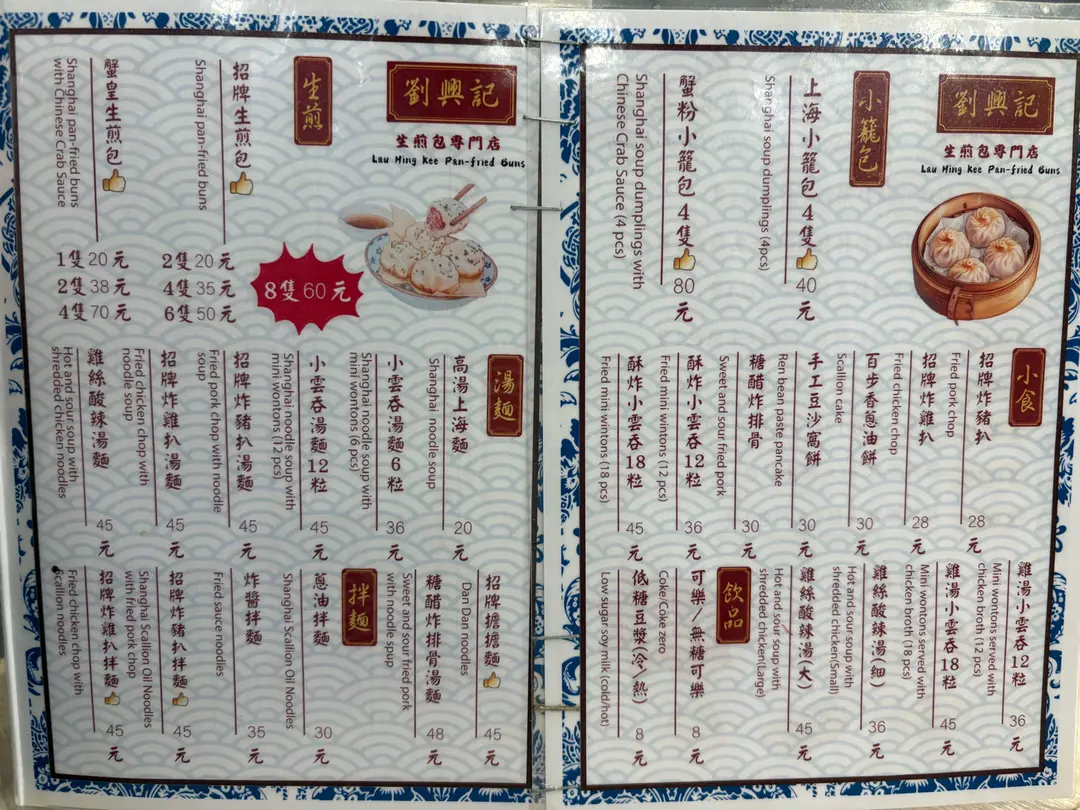 劉興記
生煎包專門店
Lau Hing Kee Pan-fried Buns
小籠包
上海小籠包 4隻
Shanghai soup dumplings (4pcs)
40
蟹粉小籠包 4隻
Shanghai soup dumplings with
Chinese Crab Sauce (4 pcs)
80 元
小食
招牌炸豬扒
Fried pork chop
28
招牌炸雞扒
Fried chicken chop
28 元
百步香蔥油餅
Scallion cake
30 元
手工豆沙窩餅
Ren bean paste pancake
30 元
糖醋炸排骨
Sweet and sour fried pork
30 元
酥炸小雲吞12粒
Fried mini wintons (12 pcs)
36 元
酥炸小雲吞18粒
Fried mini wintons (18 pcs)
45 元
雞湯小雲吞12粒
Mini wontons served with
chicken broth (12 pcs)
36 元
雞湯小雲吞18粒
Mini wontons served with
chicken broth (18 pcs)
45 元
雞絲酸辣湯(細)
Hot and sour soup with
shredded chicken(Small)
36 元
雞絲酸辣湯(大)
Hot and sour soup with
shredded chicken(Large)
45 元
飲品
可樂／無糖可樂
Coke/Coke zero
8 元
低糖豆漿(冷／熱)
Low sugar soy milk (cold/hot)
8 元
劉興記
生煎包專門店
Lau Hing Kee Pan-fried Buns
生煎
招牌生煎包
Shanghai pan-fried buns
2隻20元
4隻35元
6隻50元
8隻60元
蟹皇生煎包
Shanghai pan-fried buns
with Chinese Crab Sauce
1隻20元
2隻38元
4隻70元
湯麵
高湯上海麵
Shanghai noodle soup
20 元
小雲吞湯麵6粒
Shanghai noodle soup with
mini wontons (6 pcs)
36 元
小雲吞湯麵12粒
Shanghai noodle soup with
mini wontons (12 pcs)
45 元
招牌炸豬扒湯麵
Fried pork chop with noodle
soup
45 元
招牌炸雞扒湯麵
Fried chicken chop with
noodle soup
45 元
雞絲酸辣湯麵
Hot and sour soup with
shredded chicken noodles
45 元
招牌擔擔麵
Dan Dan noodles
45 元
糖醋炸排骨湯麵
Sweet and sour fried pork
with noodle soup
48 元
拌麵
蔥油拌麵
Shanghai Scallion Oil Noodles
30 元
炸醬拌麵
Fried sauce noodles
35 元
招牌炸豬扒拌麵
Shanghai Scallion Oil Noodles
with fried pork chop
45 元
招牌炸雞扒拌麵
Fried chicken chop with
scallion noodles
45 元